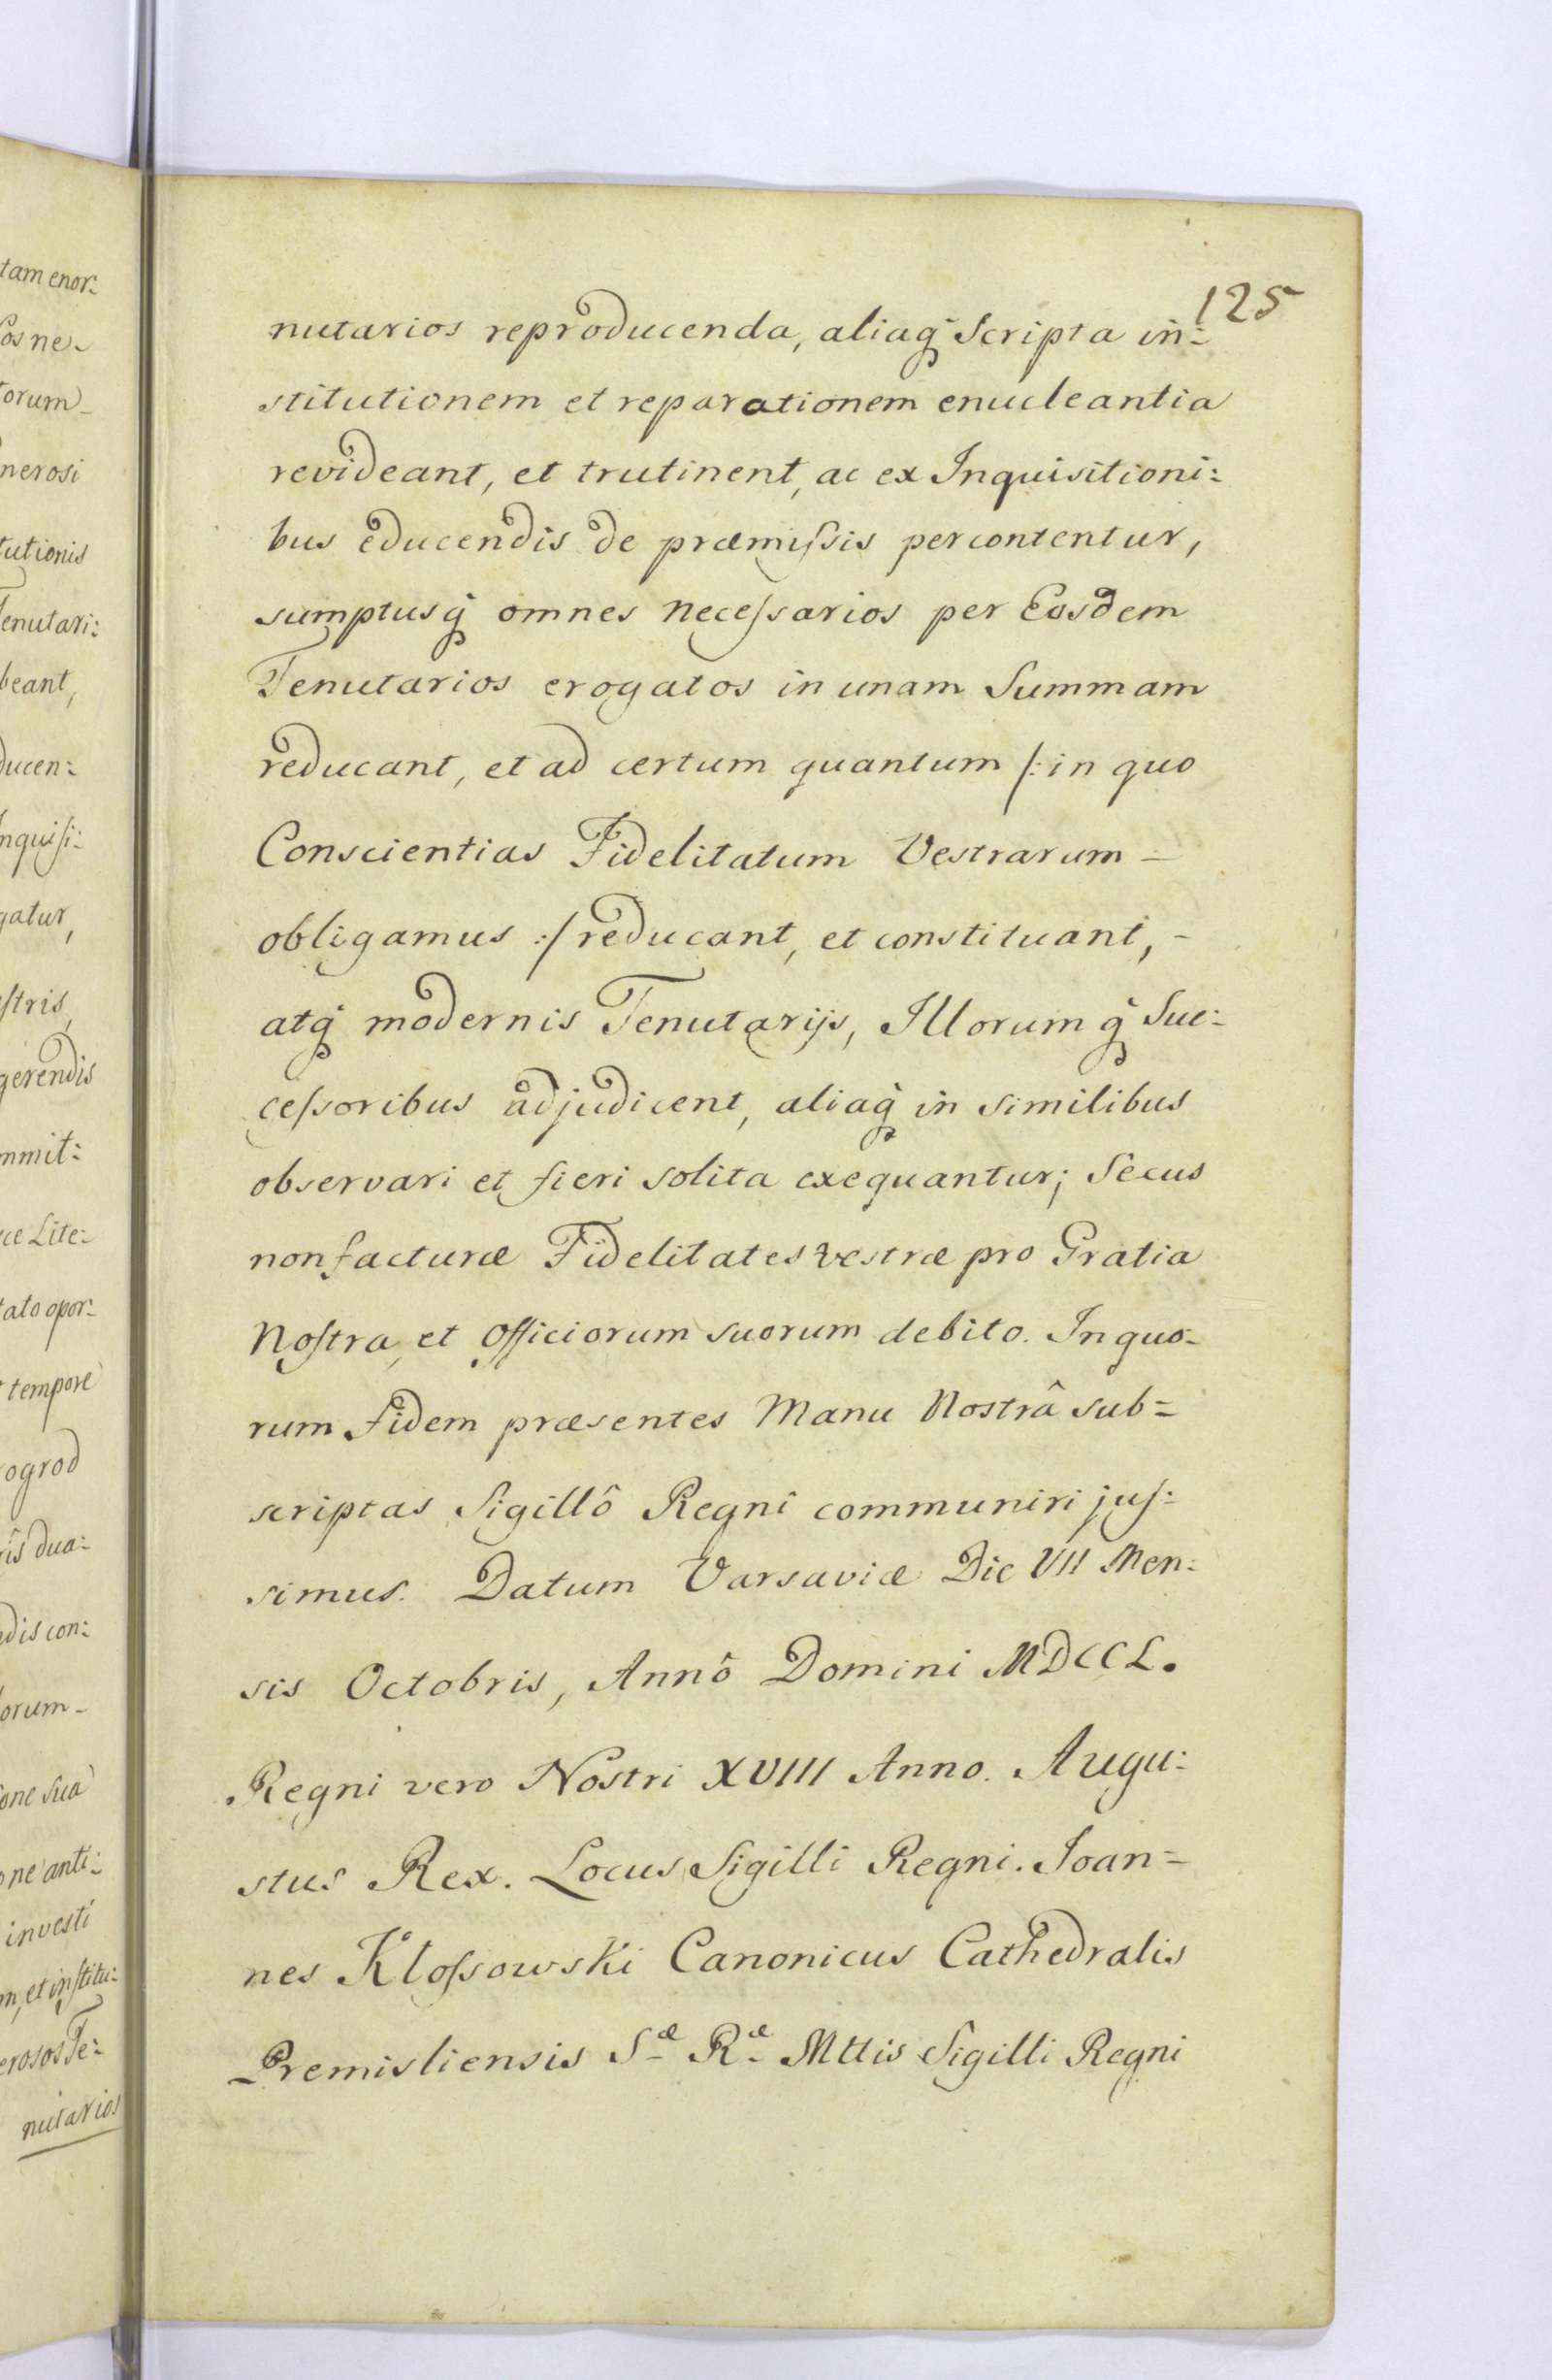 125
nutarios reproducenda, aliaq̃ Scripta in:
stitutionem et reparationem enucleantia
revideant, et trutinent, ac ex Inquisitioni:
bus educendis de præmiſsis percontentur,
sumptusq̃ omnes neceſsarios per Eosdem
Tenutarios erogatos in unam Summam
reducant, et ad certum quantum /: in quo
Conscientias Fidelitatum Vestrarum –
obligamus :/ reducant, et constituant, –
atq̃ modernis Tenutarijs, Illorum q̃ Suc:
ceſsoribus adjudicent, aliaq̃ in similibus
observari et fieri solita exequantur; Secus
non facturæ Fidelitates vestræ pro Gratia
Noſtra, et Officiorum suorum debito. In quo-
rum fidem præsentes Manu Nostrâ sub=
scriptas Sigillô Regni communiri juſ:
simus. Datum Varsaviæ Die VII Men:
sis Octobris, Annô Domini MDCCL.
Regni vero Nostri XVIII Anno. Augu:
stus Rex. Locus Sigilli Regni. Ioan=
nes Kloſsowski Canonicus Cathedralis
Premisliensis Sæ Ræ Mttis Sigilli Regni
tam enor:
os ne-
orum-
nerosi
tutionis
Tenutari:
beant,
ducen:
nquiſi:
gatur,
eſtris,
gerendis
mmit:
ce Lite:
tato opor:
tempore
ogrod
ris dua:
dis con:
orum-
one sua
one anti:
investi
m, et inſtitu:
erosos Te:
nutarios